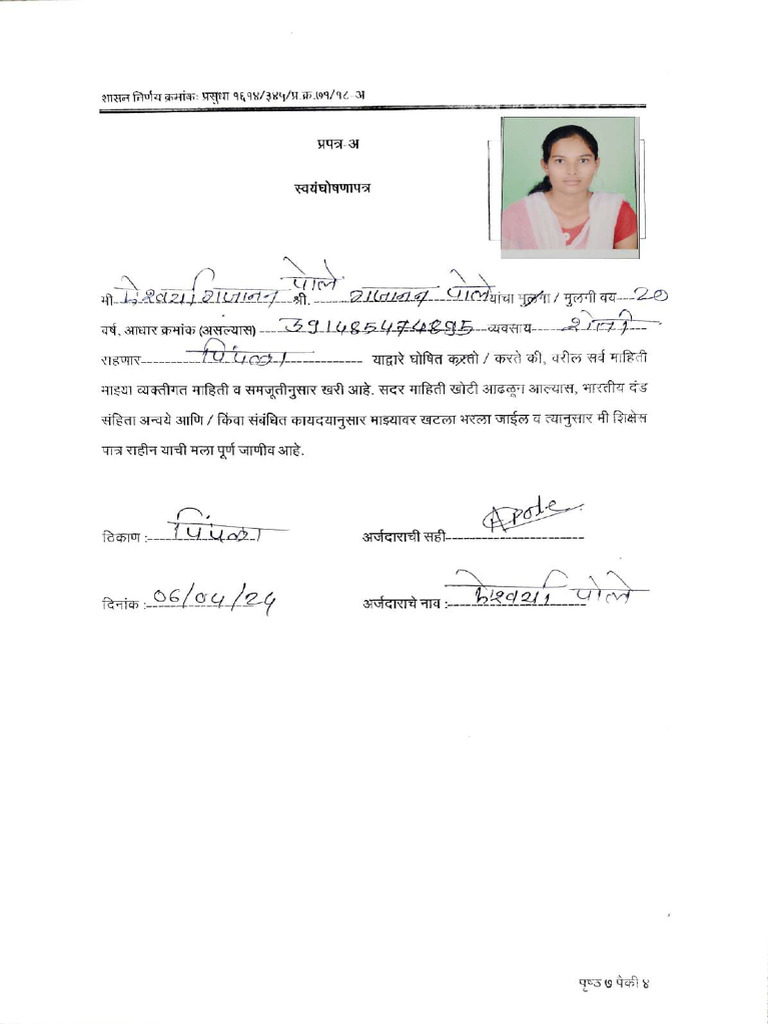 शासन निर्णय क्रमांकः प्रसुधा १६१४/३४५/प्र.क्र.७१/१८-अ
प्रपत्र-अ
स्वयंघोषणापत्र
मी ऐश्वर्या गजानन पोले श्री. गजानन पोले यांचा मुलगा / मुलगी वय 20
वर्ष, आधार क्रमांक (असल्यास) 391485474895 व्यवसाय शेती
राहणार पिंपळा याद्वारे घोषित करतो / करते की, वरील सर्व माहिती
माझ्या व्यक्तीगत माहिती व समजूतीनुसार खरी आहे. सदर माहिती खोटी आढळून आल्यास, भारतीय दंड
संहिता अन्वये आणि / किंवा संबंधित कायदयानुसार माझ्यावर खटला भरला जाईल व त्यानुसार मी शिक्षेस
पात्र राहीन याची मला पूर्ण जाणीव आहे.
ठिकाण : पिंपळा अर्जदाराची सही Apole
दिनांक : 06/04/24 अर्जदाराचे नाव : ऐश्वर्या पोले
पृष्ठ ७ पैकी ४